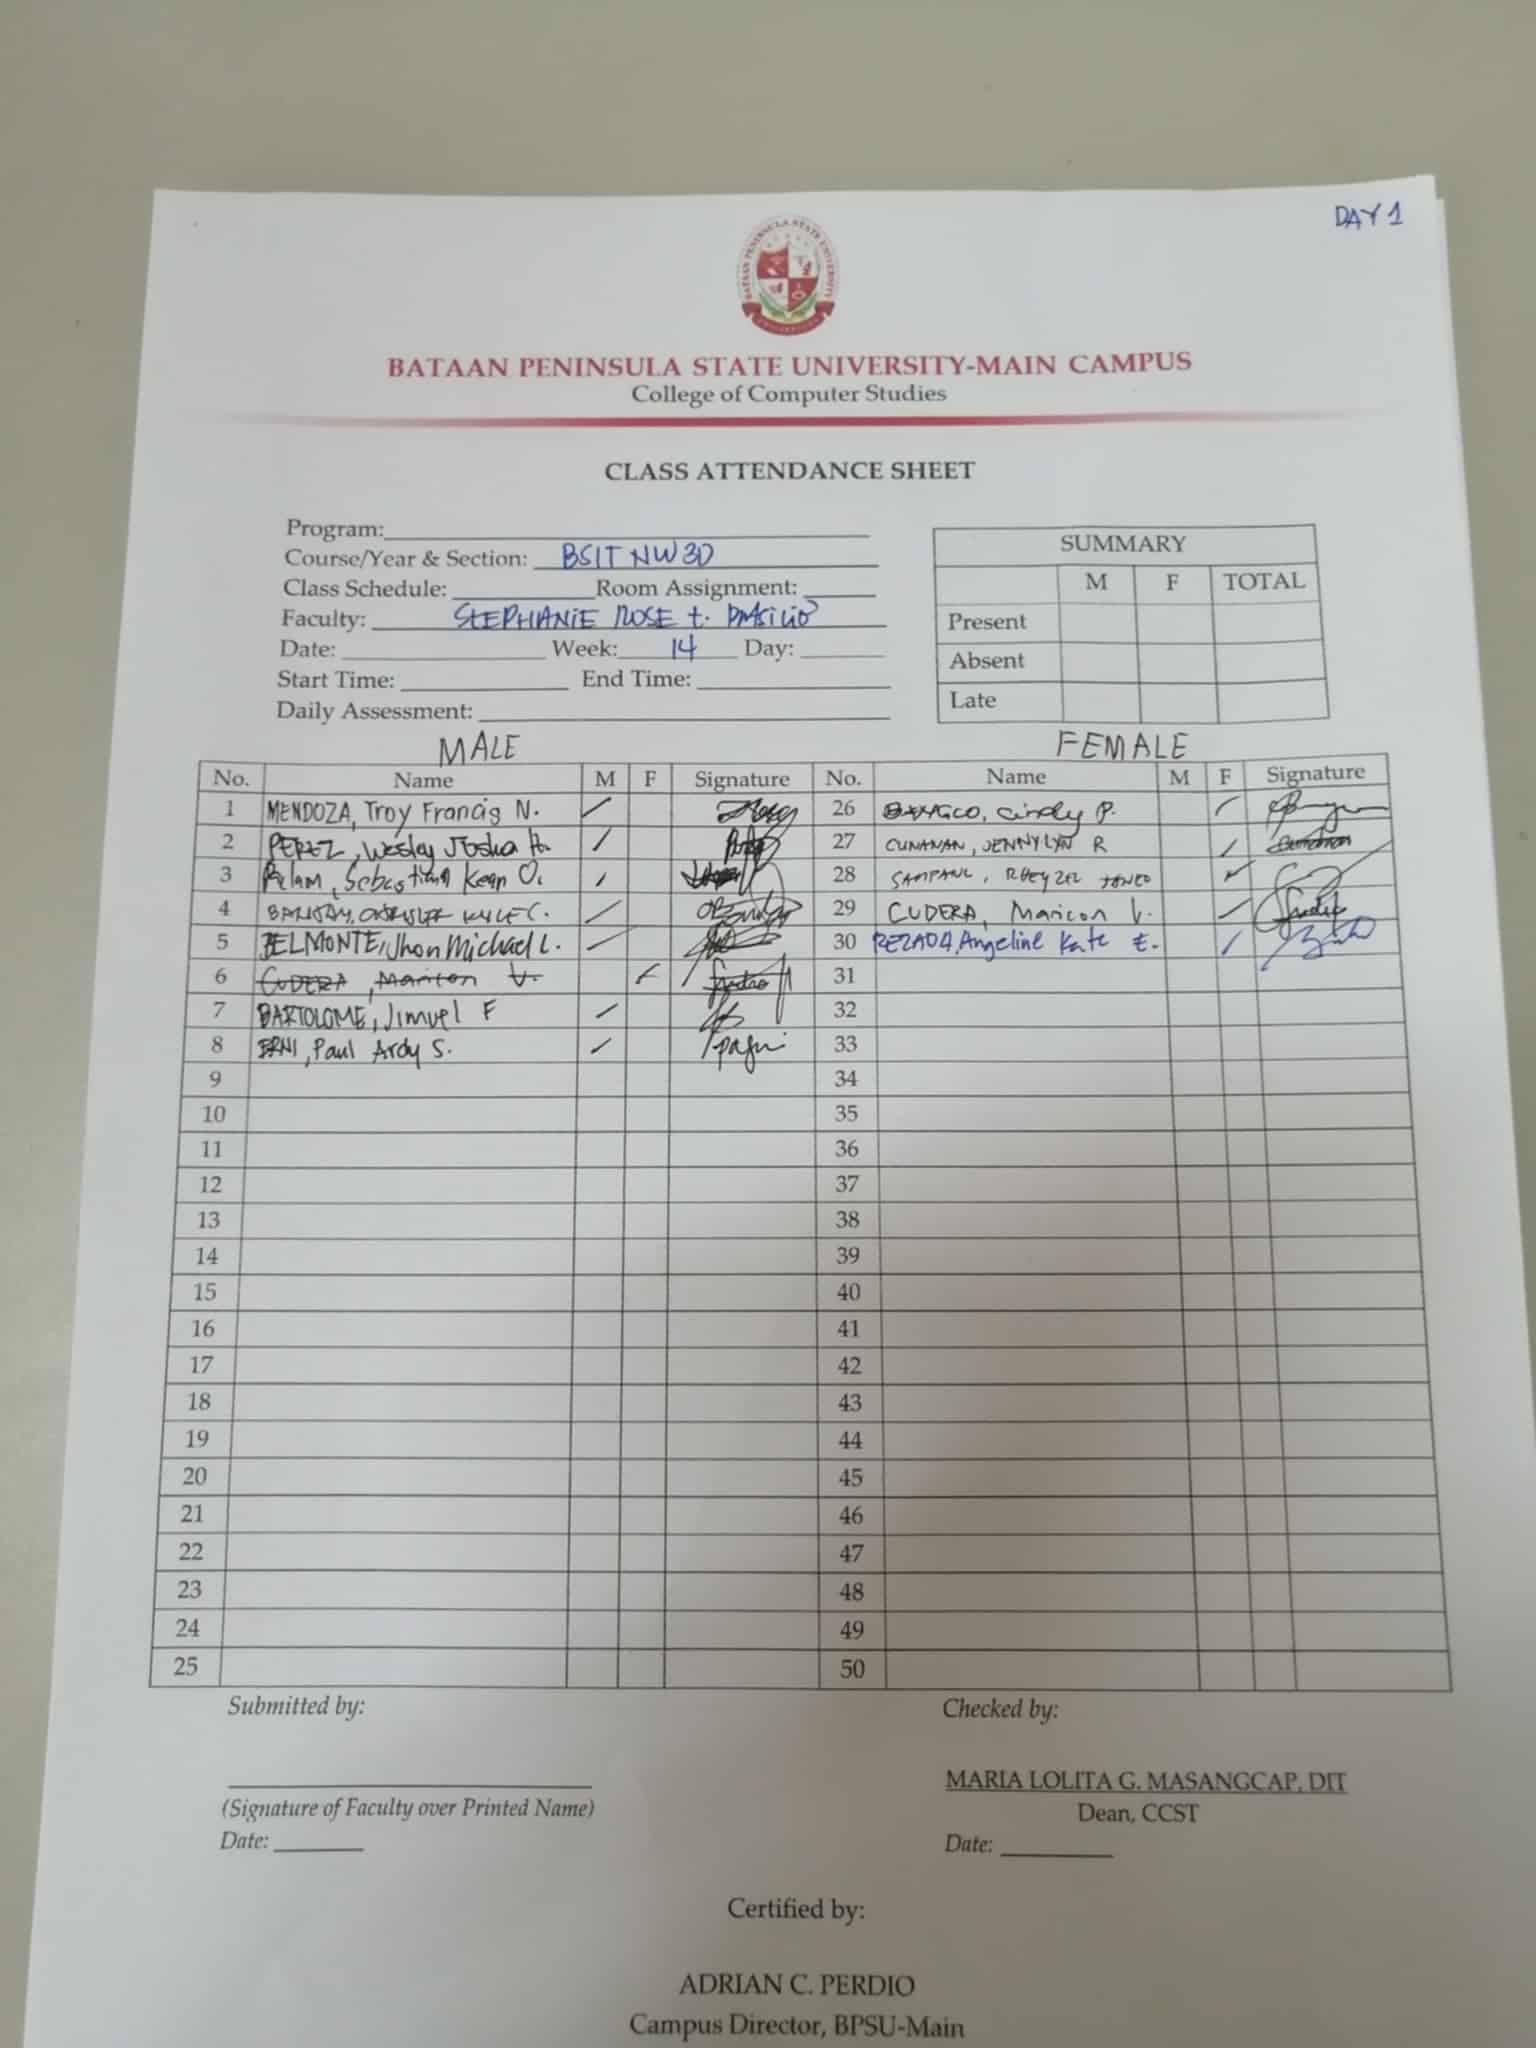 DAY 1
BATAAN PENINSULA STATE UNIVERSITY
BATAAN PENINSULA STATE UNIVERSITY-MAIN CAMPUS
College of Computer Studies
CLASS ATTENDANCE SHEET
Program:
Course/Year & Section: BSIT NW3D
Class Schedule: Room Assignment:
Faculty: STEPHANIE ROSE t.
Date: Week: 14 Day:
Start Time: End Time:
Daily Assessment:
SUMMARY
M F TOTAL
Present
Absent
Late
MALE FEMALE
No. Name M F Signature No. Name M F Signature
1 MENDOZA, Troy Francis N. 26 Cindy P.
2 PEREZ, Wesley H. 27 CUNANAN, JENNYLYN R
3 Sebastian Kean O. 28
4 KYLE C. 29 CUDERA, Maricon V.
5 BELMONTE, Jhon Michael L. 30 Angeline Kate E.
6 CUDERA, Maricon V. 31
7 BARTOLOME, Jimuel F 32
8 ERNI, Paul Ardy S. 33
9 34
10 35
11 36
12 37
13 38
14 39
15 40
16 41
17 42
18 43
19 44
20 45
21 46
22 47
23 48
24 49
25 50
Submitted by: Checked by:
MARIA LOLITA G. MASANGCAP, DIT
(Signature of Faculty over Printed Name) Dean, CCST
Date: Date:
Certified by:
ADRIAN C. PERDIO
Campus Director, BPSU-Main